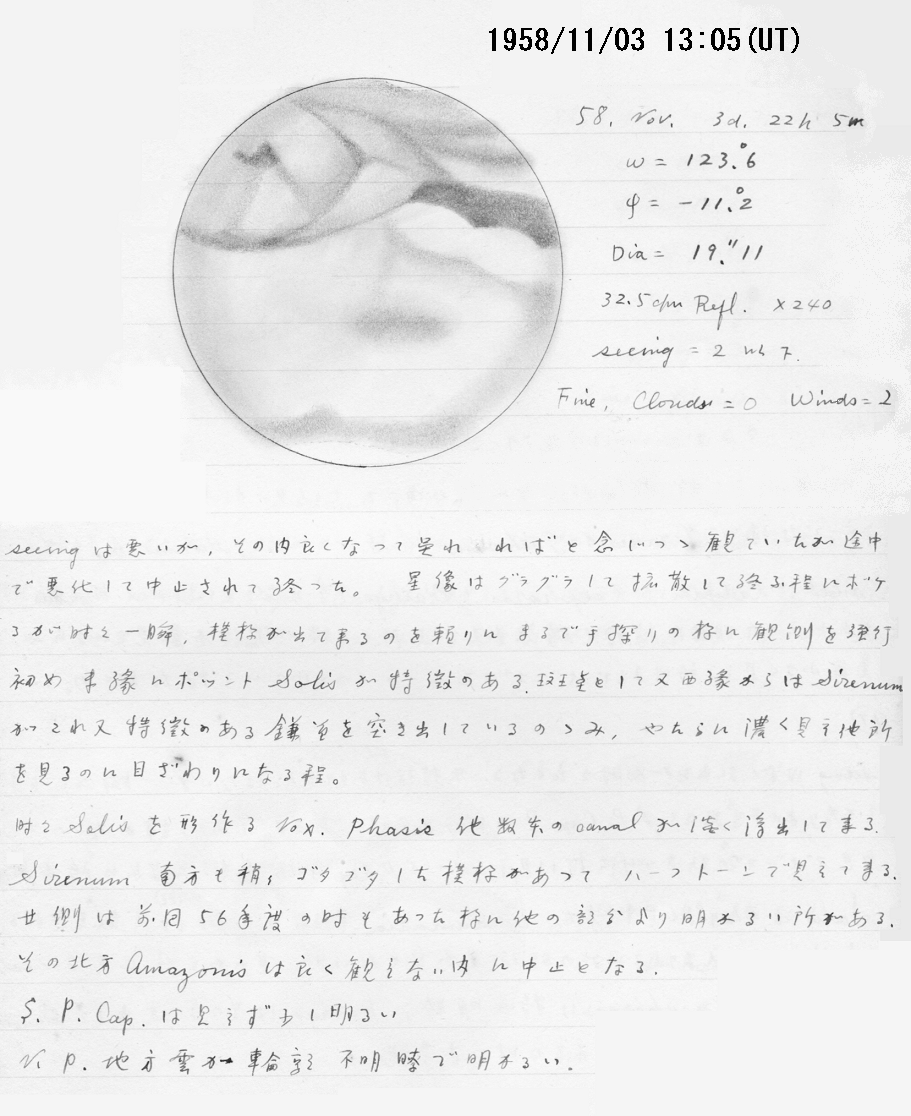 1958/11/03 13:05(UT)
58. Nov. 3d. 22h 5m
ω = 123.°6
φ = -11.°2
Dia = 19."11
32.5cm Refl. ×240
seeing = 2
Fine, Clouds = 0 Winds = 2
seeing は悪いが, その内良くなって呉れればと念じつゝ観ていたが途中
で悪化して中止されて終った。 星像はグラグラして拡散して終ふ程にボケ
るが時々一瞬, 模様が出て来るのを頼りにまるで手探りの様に観測を強行
初め 縁にポツント Solis が特徴のある 斑 として又西縁からは Sirenum
がこれ又特徴のある鎌首を突き出しているのみ, やたらに濃く見え他所
を見るのに目ざわりになる程。
時々 Solis を形作る Nox. Phasis 他数本の canal が淡く浮出して来る.
Sirenum 南方も稍々ゴタゴタした模様があって ハーフトーンで見えて来る.
 側は前回56年度の時もあった様に他の部分より明かるい所がある.
その北方 Amazonis は良く観えない内に中止となる.
S. P. Cap. は見えず少し明るい
N. P. 地方雲か輪郭不明瞭で明かるい.